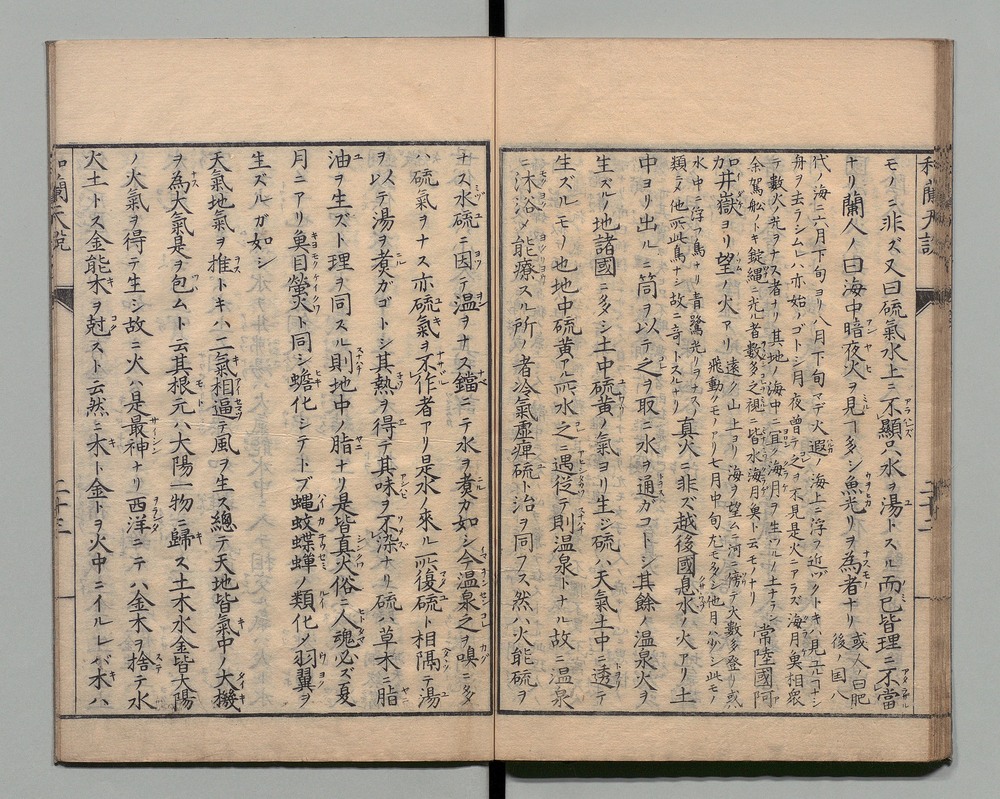 モノニ非ズ又曰硫氣水上ニ不顯只水ヲ湯トスルノミ而已皆理ニ不當
ナリ蘭人ノ曰海中暗夜火ヲ見ルコト多シ魚光リヲ為者ナリ
或人ノ曰肥後ノ国八
代ノ海ニ六月下旬ヨリ八月下旬マデ火遐ノ海上ニ浮ヲ近ヅクトキハ見ユルコナシ
舟ヲ去ラシムレバ亦始ノゴトシ月夜曽テ之ヲ不見是火ニアラズ海月魚相聚
テ數火ノ光ヲナス者ナリ其地ノ海中ニ宜ク海月ヲ生ヅルノ土ナラン常陸國阿
余駕舩ノトキ錠縄ニ光ル者數多之視ニ皆水海月魚ト云モノナリ
井嶽ヨリ望ノ火アリ
遠ク山上ヨリ海ヲ望ムニ河ニ傍テ火數多登リ或
飛動クモノアリ七月中旬尤モ多シ他月ハ少シ此モノ
水中ニ浮フ鳥ナリ青鷺光リヲナス
真火ニ非ズ越後國息水ノ火アリ土
中ヨリ出ルニ筒ヲ以テ之ヲ取ニ水ヲ通ガコトシ其餘ノ温泉火ヲ
生ズル地諸國ニ多シ土中硫黄ノ氣ヨリ生ジ硫ハ天氣土中ニ透テ
生ズルモノ也地中硫黄アル所水之ニ遇從テ則温泉トナル故ニ温泉
ニ沐浴メ能療スル所ノ者冷氣虚痺硫ト治ヲ同フス然ハ火能硫
ナス水硫ニ因テ温ヲナス鐺ニテ水ヲ煑カ如シ今温泉之ヲ嗅ニ多
ハ硫氣ヲナス亦硫氣ヲ不作者アリ是水ノ來ル所復硫ト相隅テ湯
ヲ以テ湯ヲ煑ガゴトシ其熱ヲ得テ其味ヲ不染ナリ硫ハ草木ニ脂
油ヲ生ズト理ヲ同スル則地中ノ脂ナリ是皆真火俗ニ人魂必ズ夏
月ニアリ魚目螢火ト同シ蟾化シテトブ蝿蚊蝶蝉ノ類化メ羽翼ヲ
生ズルガ如シ
天氣地氣ヲ推トキハ二氣相逼テ風ヲ生ス總テ天地皆氣中ノ大機
ヲ為大氣是ヲ包ムト云其根元ハ大陽一物ニ歸ス土木水金皆大陽
ノ火氣ヲ得テ生シ故ニ火ハ是最神ナリ西洋ニテハ金木ヲ捨テ水
火土トス金能木ヲ尅スト云然ニ木ト金トヲ火中ニイルレバ木ハ